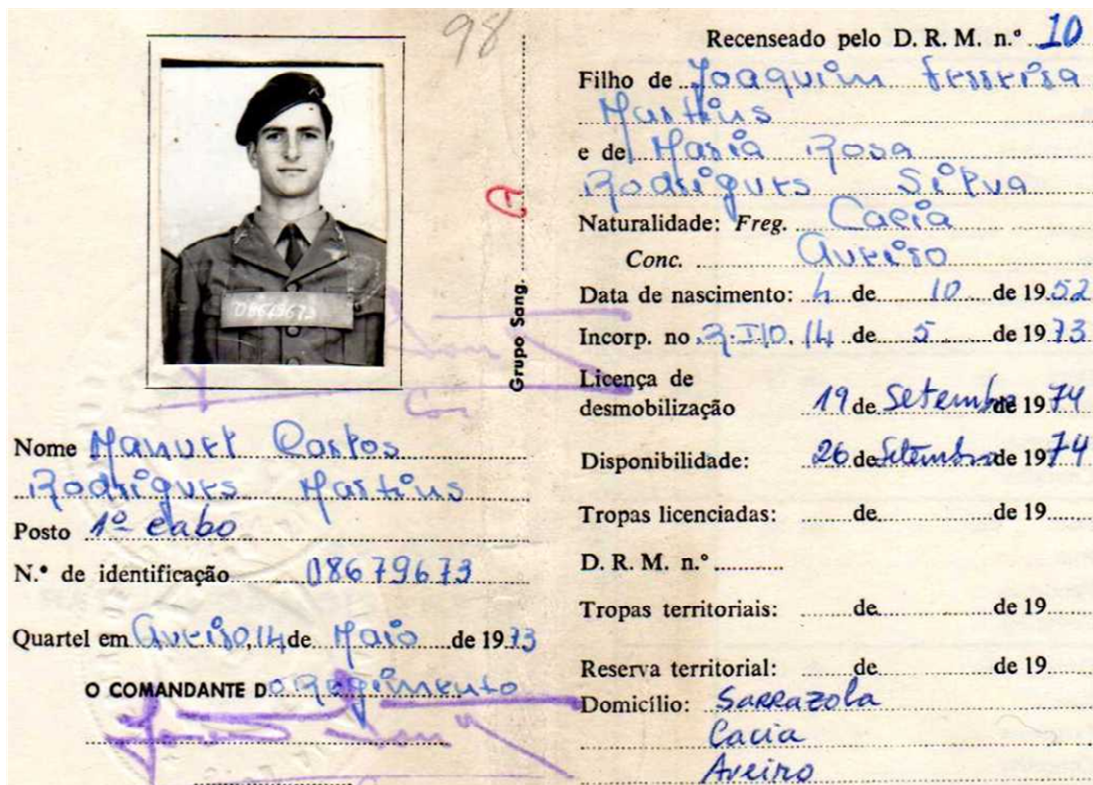 98
08679673
Grupo Sang. A
Nome Manuel Carlos
Rodrigues Martins
Posto 1º cabo
N.º de identificação 08679673
Quartel em Aveiro, 14 de Maio de 1973
O COMANDANTE DO Regimento
Recenseado pelo D. R. M. n.º 10
Filho de Joaquim Ferreira
Martins
e de Maria Rosa
Rodrigues Silva
Naturalidade: Freg. Cacia
Conc. Aveiro
Data de nascimento: 4 de 10 de 1952
Incorp. no R.I.10, 14 de 5 de 1973
Licença de
desmobilização 19 de Setembro de 1974
Disponibilidade: 26 de Setembro de 1974
Tropas licenciadas: de de 19
D. R. M. n.º
Tropas territoriais: de de 19
Reserva territorial: de de 19
Domicílio: Sarrazola
Cacia
Aveiro